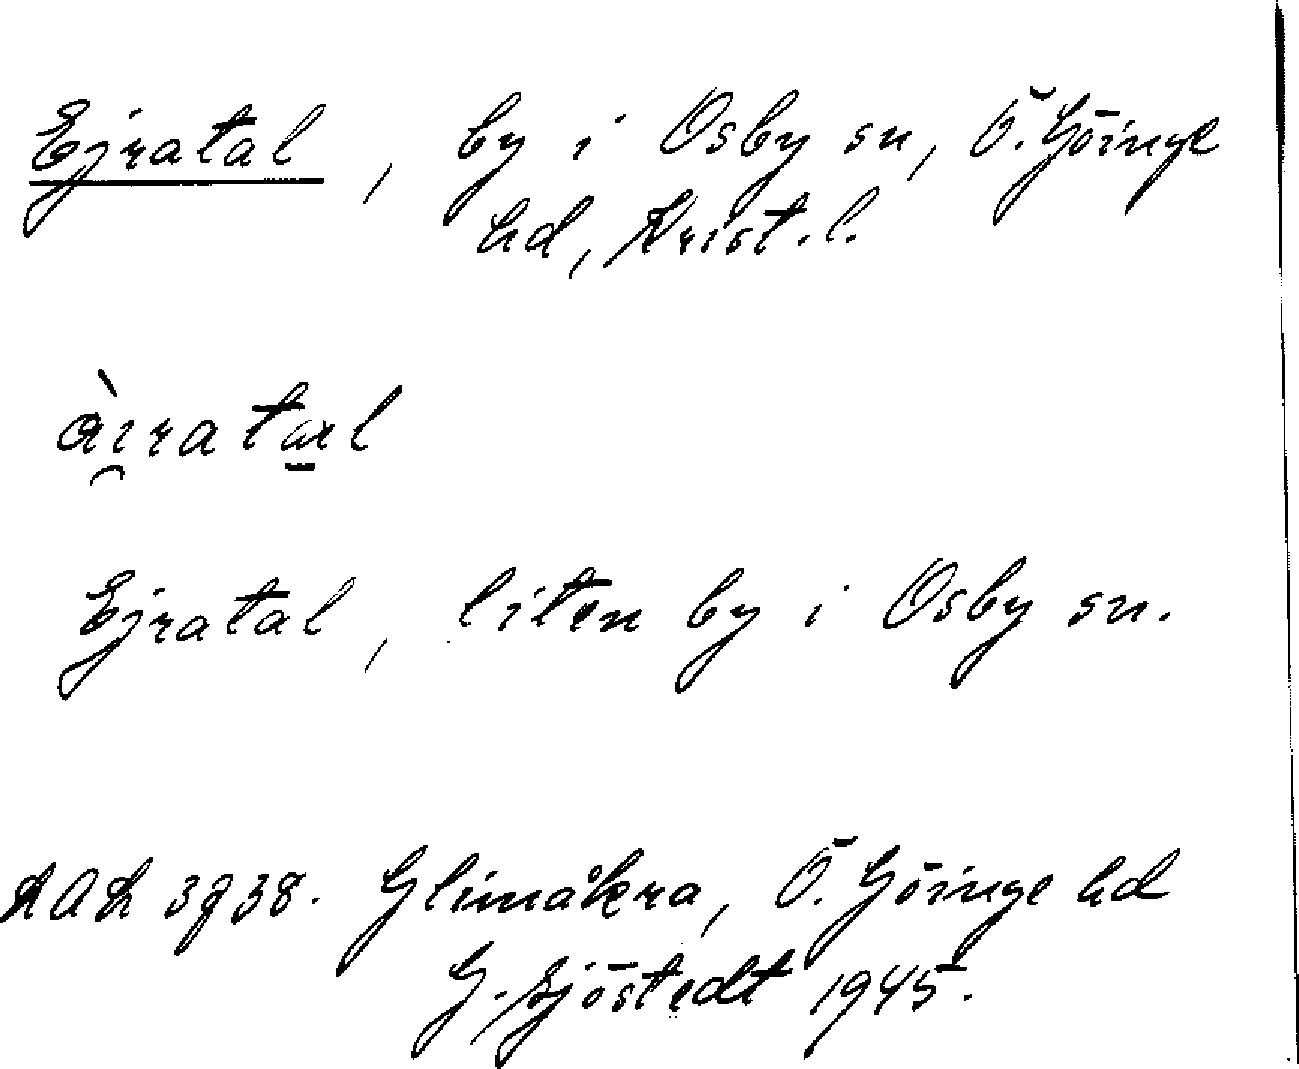 Ejratal, by i Osby sn, Ö. Göinge
hd, Krist. l.
àı̯ratɑl
Ejratal, liten by i Osby sn.
3938. Glimåkra, Ö. Göinge hd
G. Sjöstedt 1945.